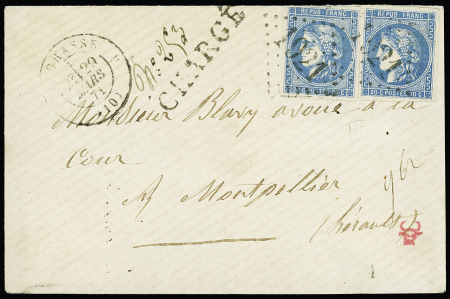 GRASSE
20
MARS
71
N° 253
CHARGÉ
REPUB. FRANC.
REPUB. FRANC.
20 C. POSTES 20 C.
Monsieur Blavy avoué a la
Cour
A Montpellier
(hérault)